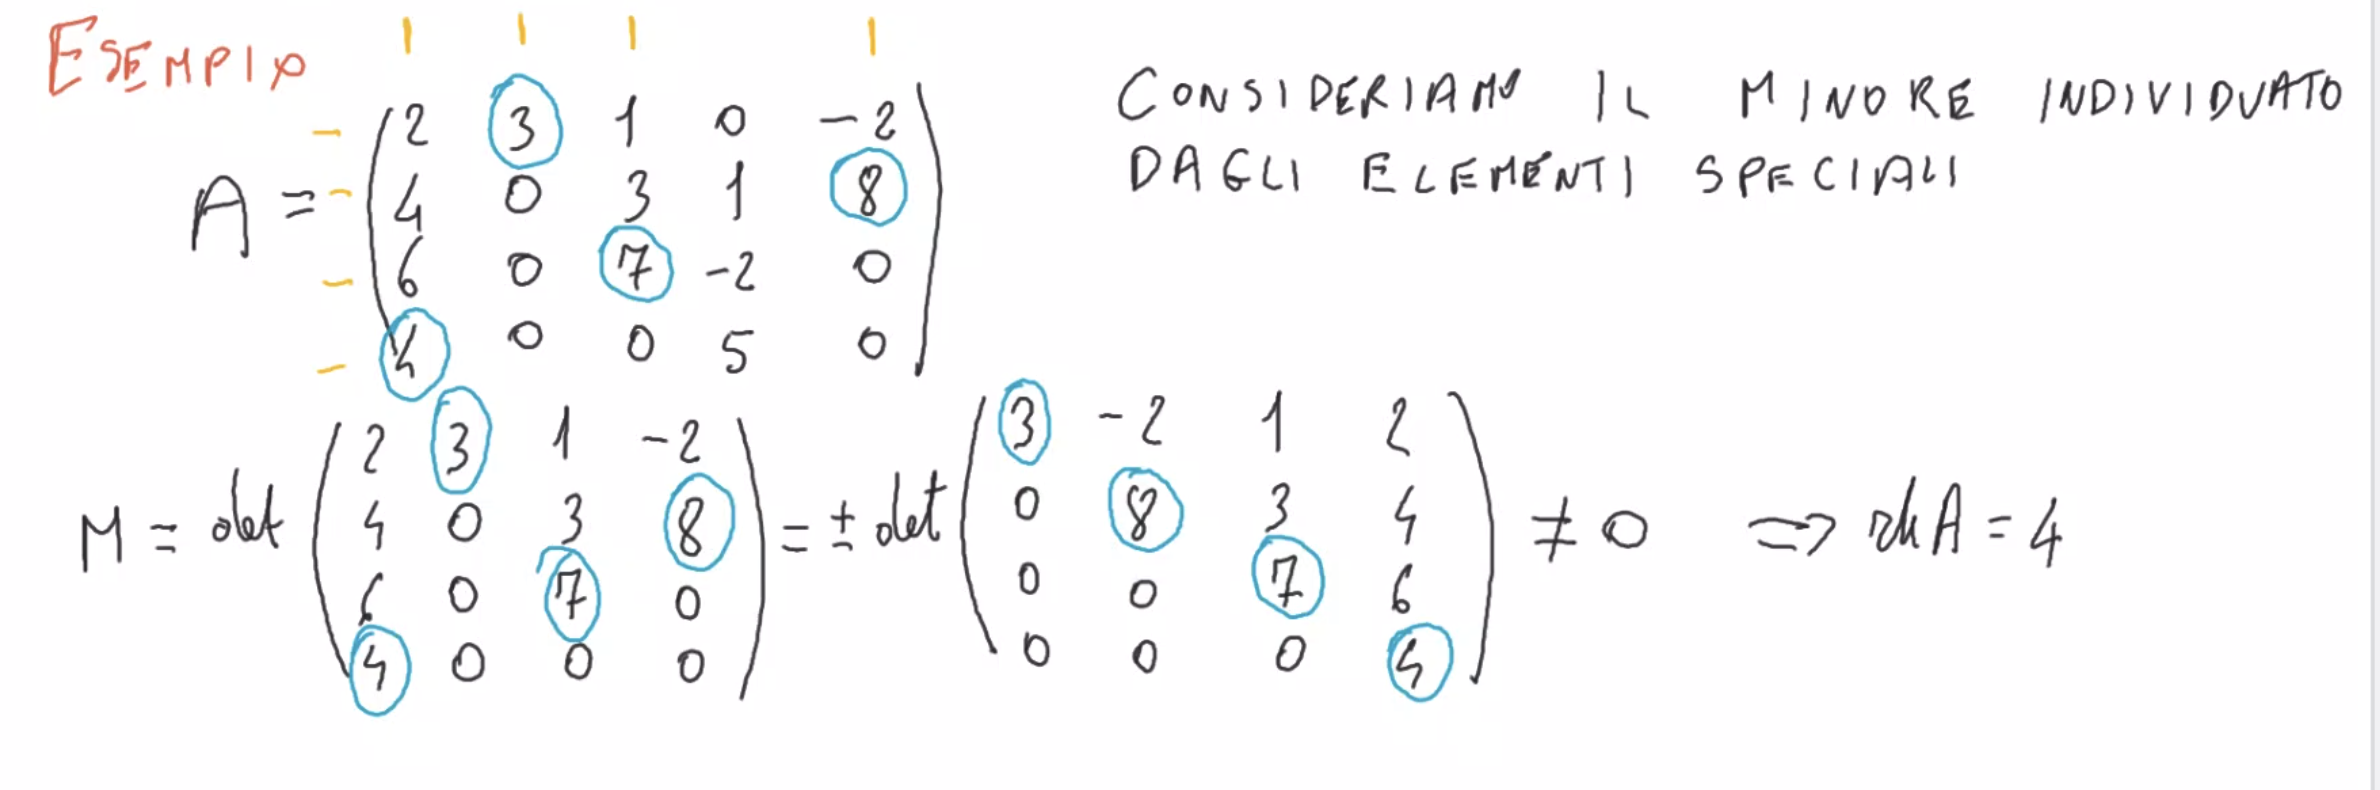 ESEMPIO
A = ( 2 3 1 0 -2
4 0 3 1 8
6 0 7 -2 0
4 0 0 5 0 )
CONSIDERIAMO IL MINORE INDIVIDUATO
DAGLI ELEMENTI SPECIALI
M = det ( 2 3 1 -2
4 0 3 8
6 0 7 0
4 0 0 0 ) = ± det ( 3 -2 1 2
0 8 3 4
0 0 7 6
0 0 0 4 ) ≠ 0 ⇒ rk A = 4